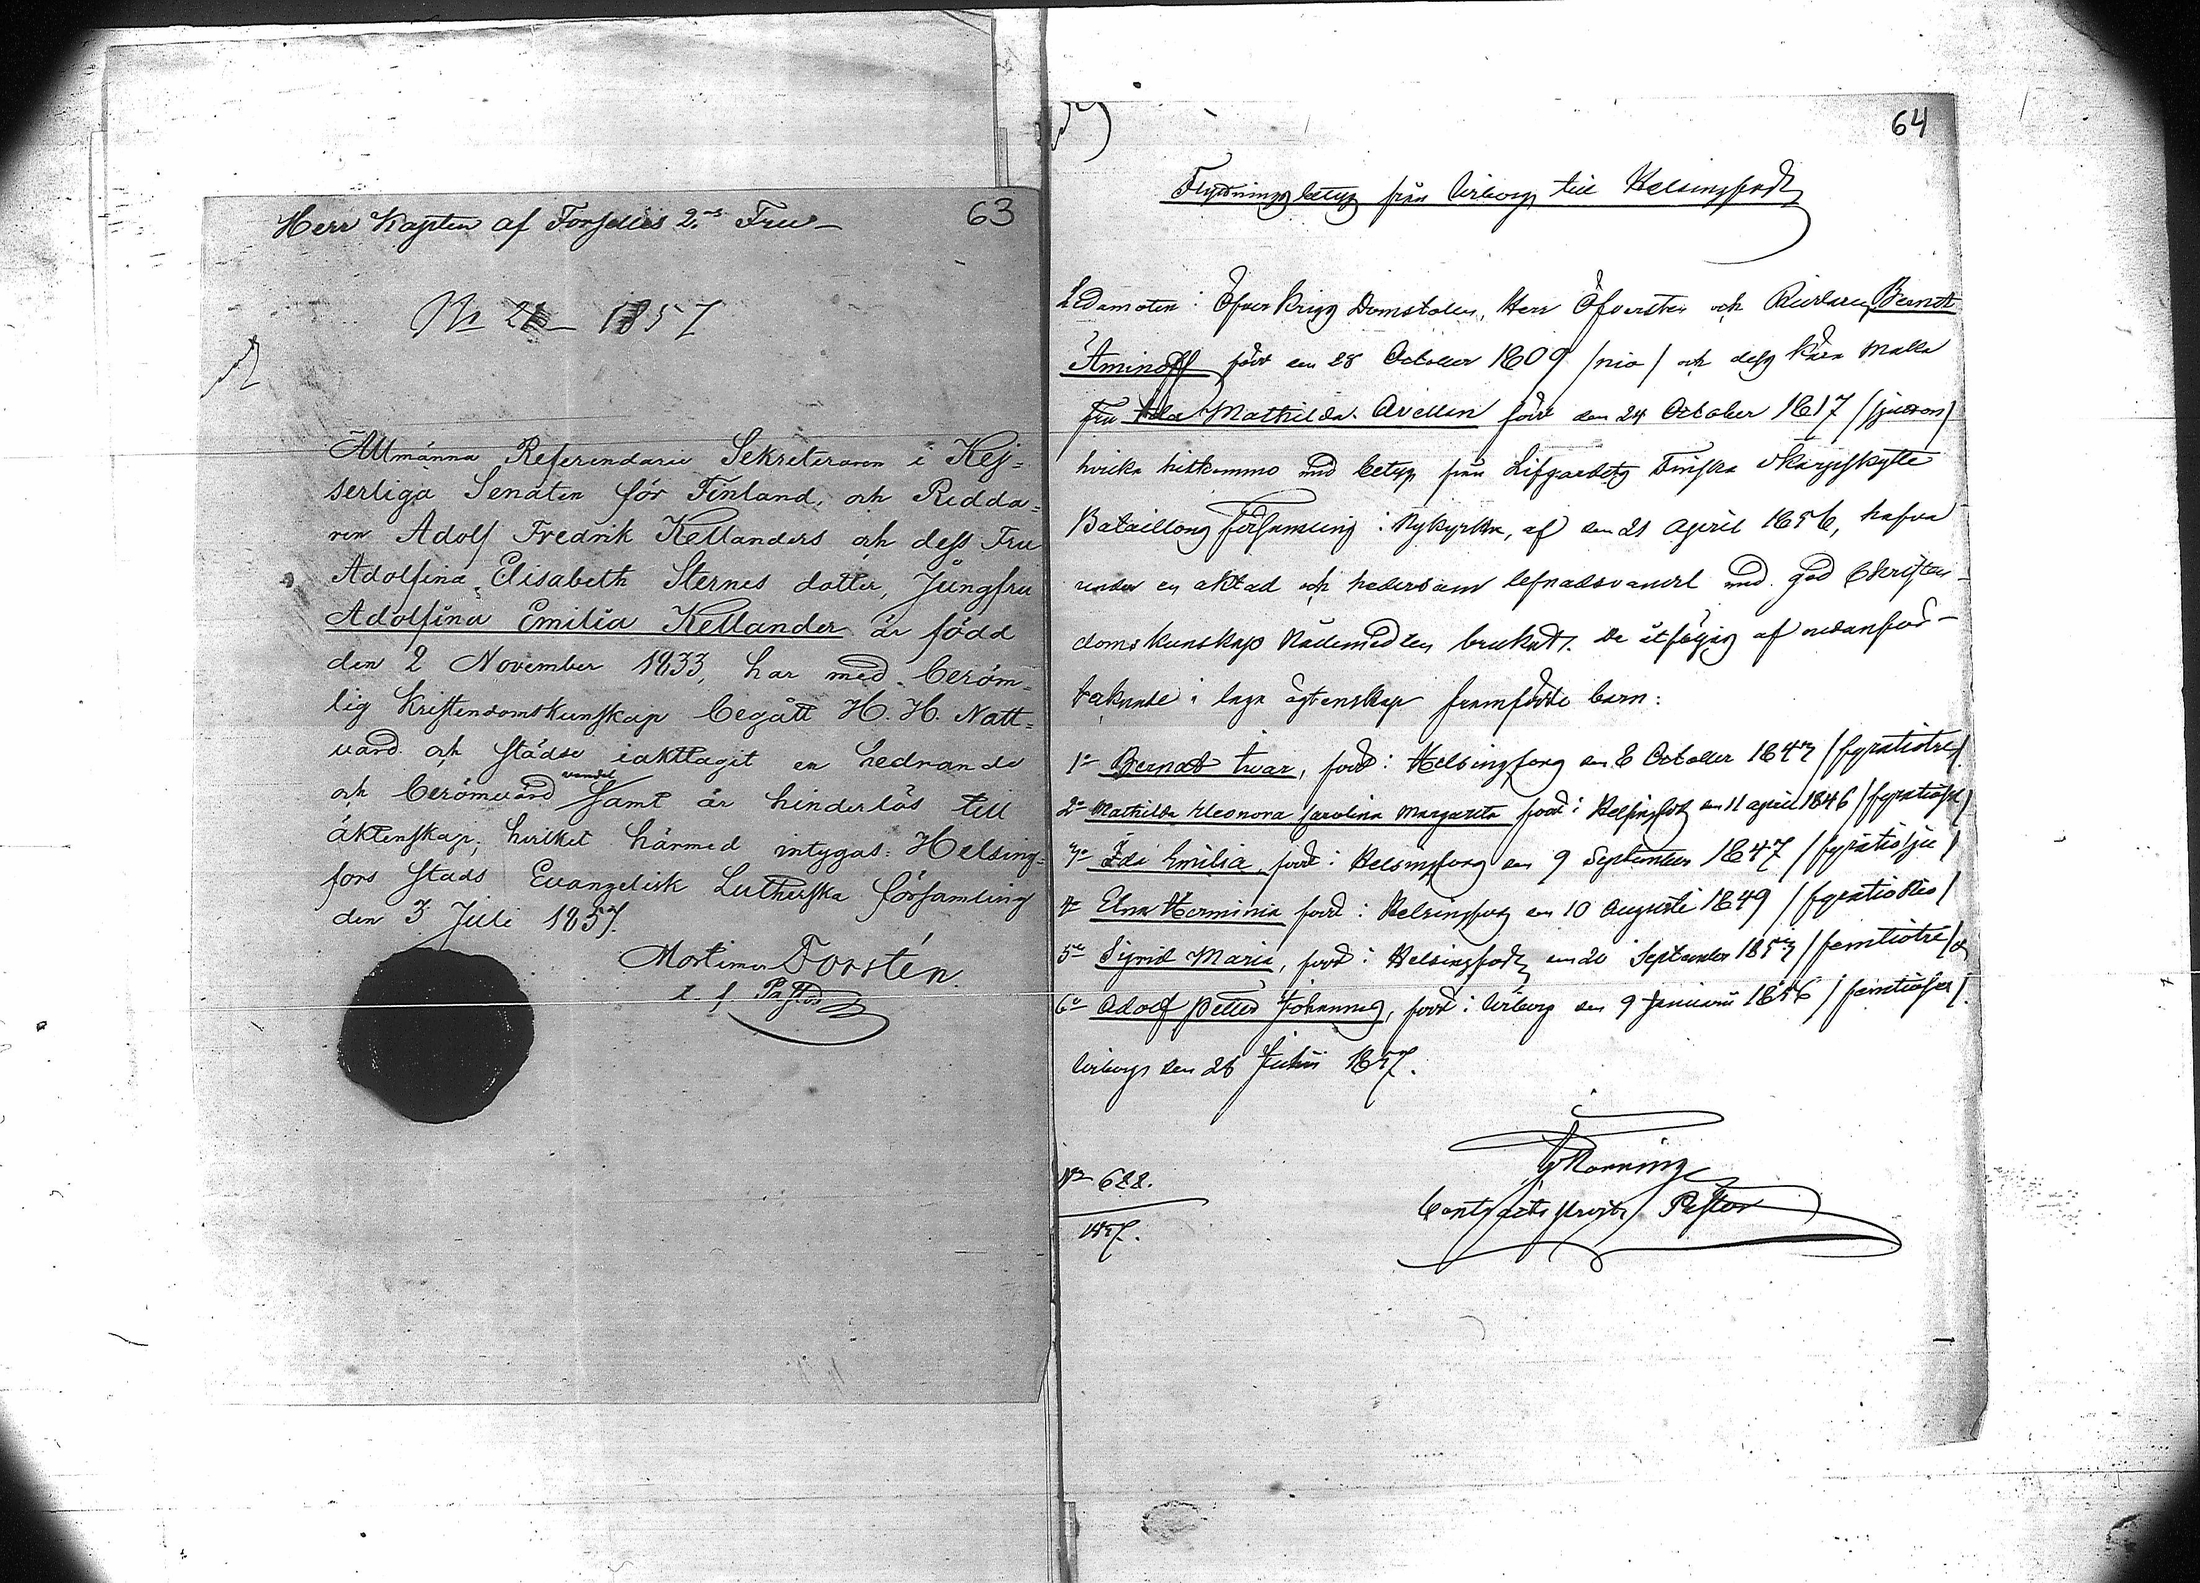 63
Herr Kapten af Forselles 2:ns Fru
No 21 1857
Allmänna Referendarie Sekreteraren i Kej=
serliga Senaten för Finland, och Ridda=
ren Adolf Fredrik Kellanders och dess Fru
Adolfina Elisabeth Sternes dotter, Jungfru
Adolfina Emilia Kellander är född
den 2 November 1833, har med beröm=
lig kristendomskunskap begått H. H. Natt=
vard och städse iakttagit en hedrande
och berömvärd vandel samt är hinderlös till
äktenskap; hvilket härmed intygas: Helsing=
fors Stads Evangelisk Lutherska församling
den 3 Juli 1857.
Mortimer Forstén
t. f. Pastor
64
Flyttningsbetyg från Wiborg till Helsingfors
Ledamoten i Öfver Krigs Domstolen, Herr Öfversten och Riddaren Berndt
Aminoff född den 28 October 1809 /nio/ och dess kära Maka
Fru Ida Mathilda Avellan född den 24 October 1817 /sjutton/
hvilka hitkommo med betyg från Lifgardets Finska Skarpskytte
Bataillons Församling i Nykyrka, af den 21 April 1856, hafva
under en aktad och hedersam lefnadsvandel med god Christen-
domskunskap Nådemedlen brukat. De åtföljas af nedanför
tecknade i laga ägtenskap framfödde barn:
1o Berndt Iwar, född i Helsingfors den 8 October 1843 /fyratiotre/
2o Mathilda Eleonora Carolina Margareta född i Helsingfors den 11 April 1846 /fyratiosex/
3o Ida Emilia, född i Helsingfors den 9 September 1847 /fyratiosju/
4o Elna Herminia född i Helsingfors den 10 Augusti 1849 /fyrationio/
5o Sigrid Maria, född i Helsingfors den 20 September 1853 /femtiotre/ &
6o Adolf Petter Johannes, född i Wiborg den 9 Januarii 1856 /femtiosex/.
Wiborg den 28 Junii 1857.
No 622.
1857.
Contracts Prost, Pastor